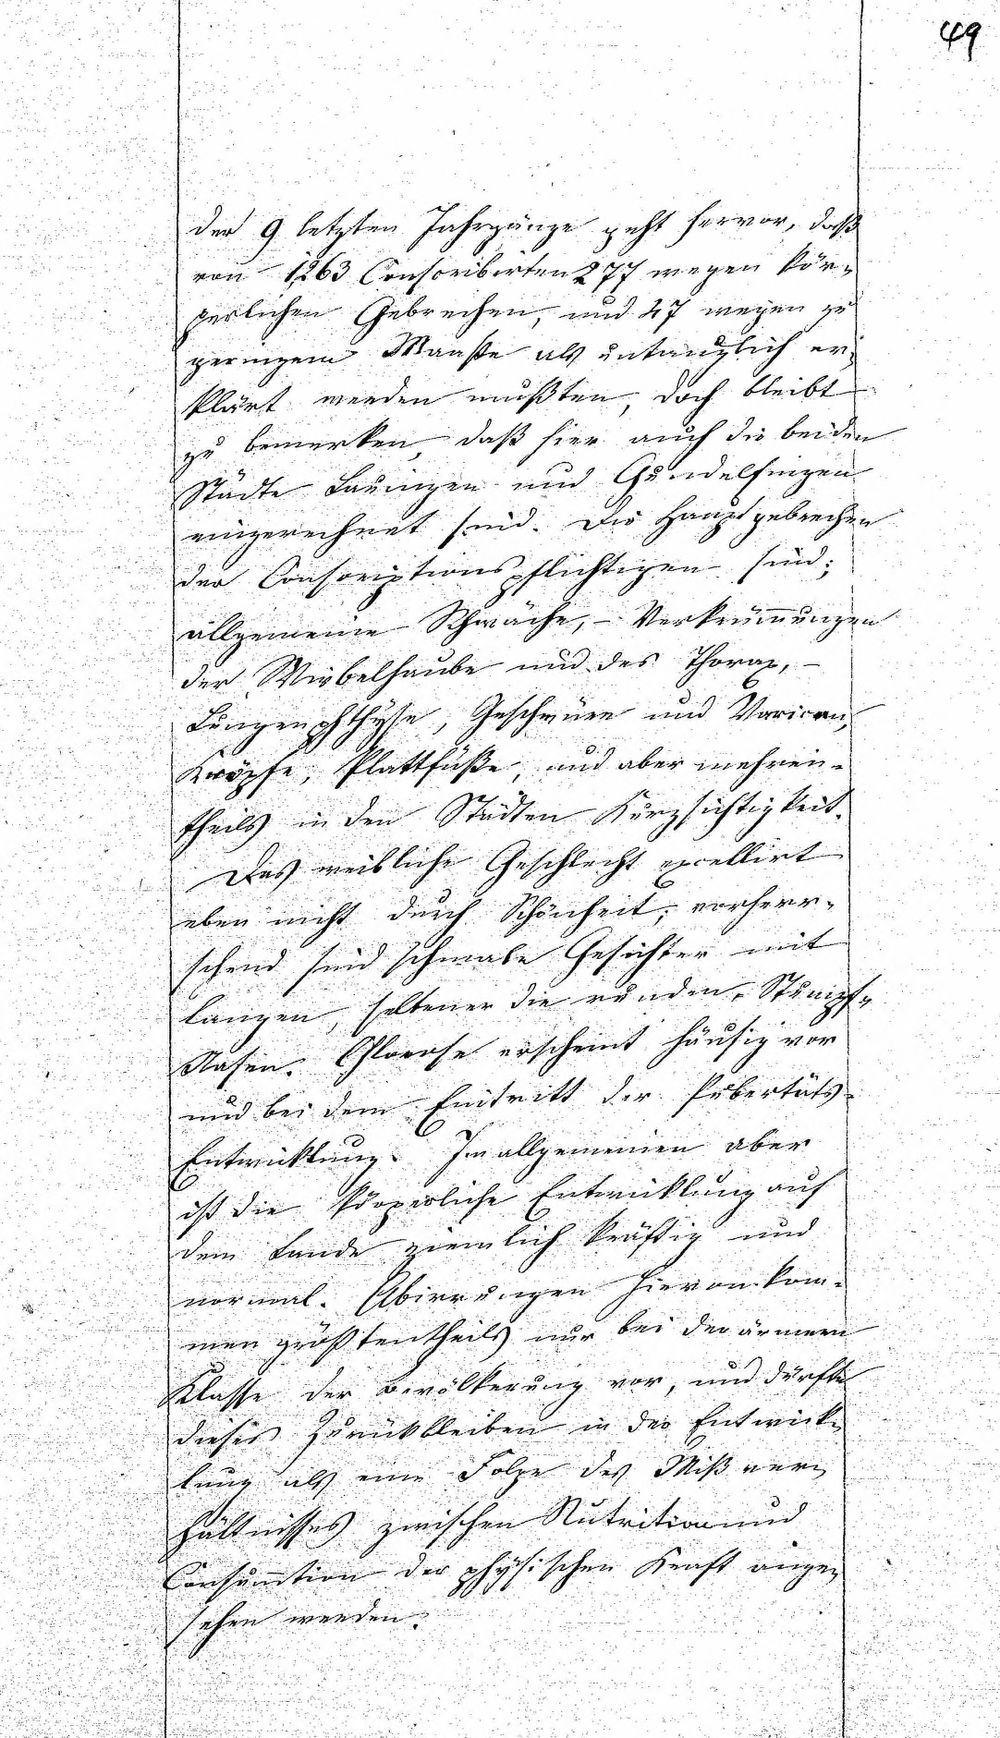 49
der 9 letzten Jahrgänge geht hervor, daß
von 1263 Conscribirten 277 wegen kör-
perlichen Gebrechen, und 47 wegen zu
geringem Maaße als untauglich er-
klärt werden mußten, doch bleibt
zu bemerken, daß hier auch die beiden
Städte Lauingen und Gundelfingen
eingerechnet sind. Die Hauptgebrechen
der Conscriptionspflichtigen sind:
allgemeine Schwäche, – Verkrümungen
der Wirbelsäule und des Thorax, –
Lungenphthyse, Geschwüre und Varicen,
Kröpfe, Plattfüße, und aber mehren-
theils in den Städten Kurzsichtigkeit.
Das weibliche Geschlecht excellirt
eben nicht durch Schönheit; vorherr-
schend sind schmale Gesichter mit
langen, seltener die runden Stumpf-
Nasen. Chlorose erscheint häufig vor
und bei dem Eintritt der Pubertäts-
Entwicklung. Im allgemeinen aber
ist die körperliche Entwicklung auf
dem Lande ziemlich kräftig und
normal. Abirrungen hievon kom-
men größtentheils nur bei der ärmern
Klasse der Bevölkerung vor, und dürfte
dieses Zurükbleiben in der Entwick-
lung als eine Folge des Mißver-
hältnisses zwischen Nutrition und
Consumtion der physischen Kraft ange-
sehen werden.